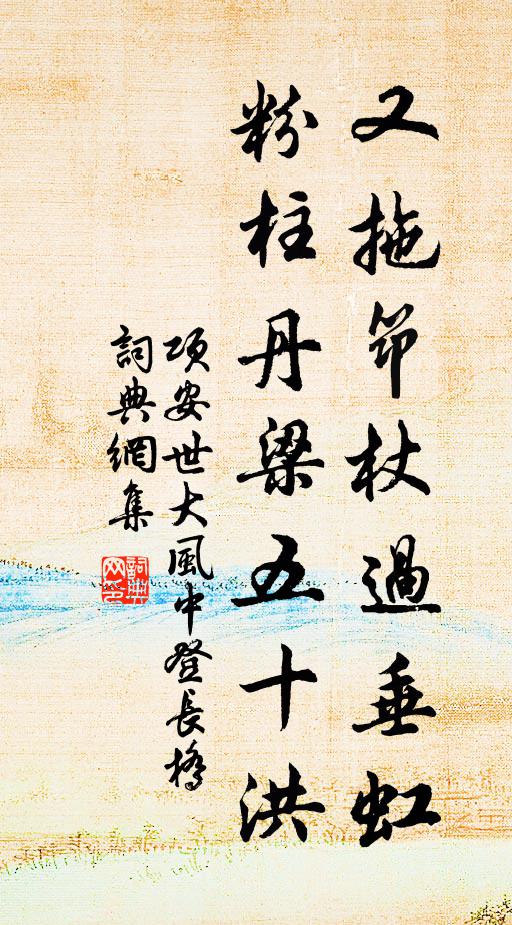 又拖筇杖過垂虹
粉柱丹梁五十洪
項安世大風中登長橋
詞典網集
詞典網印